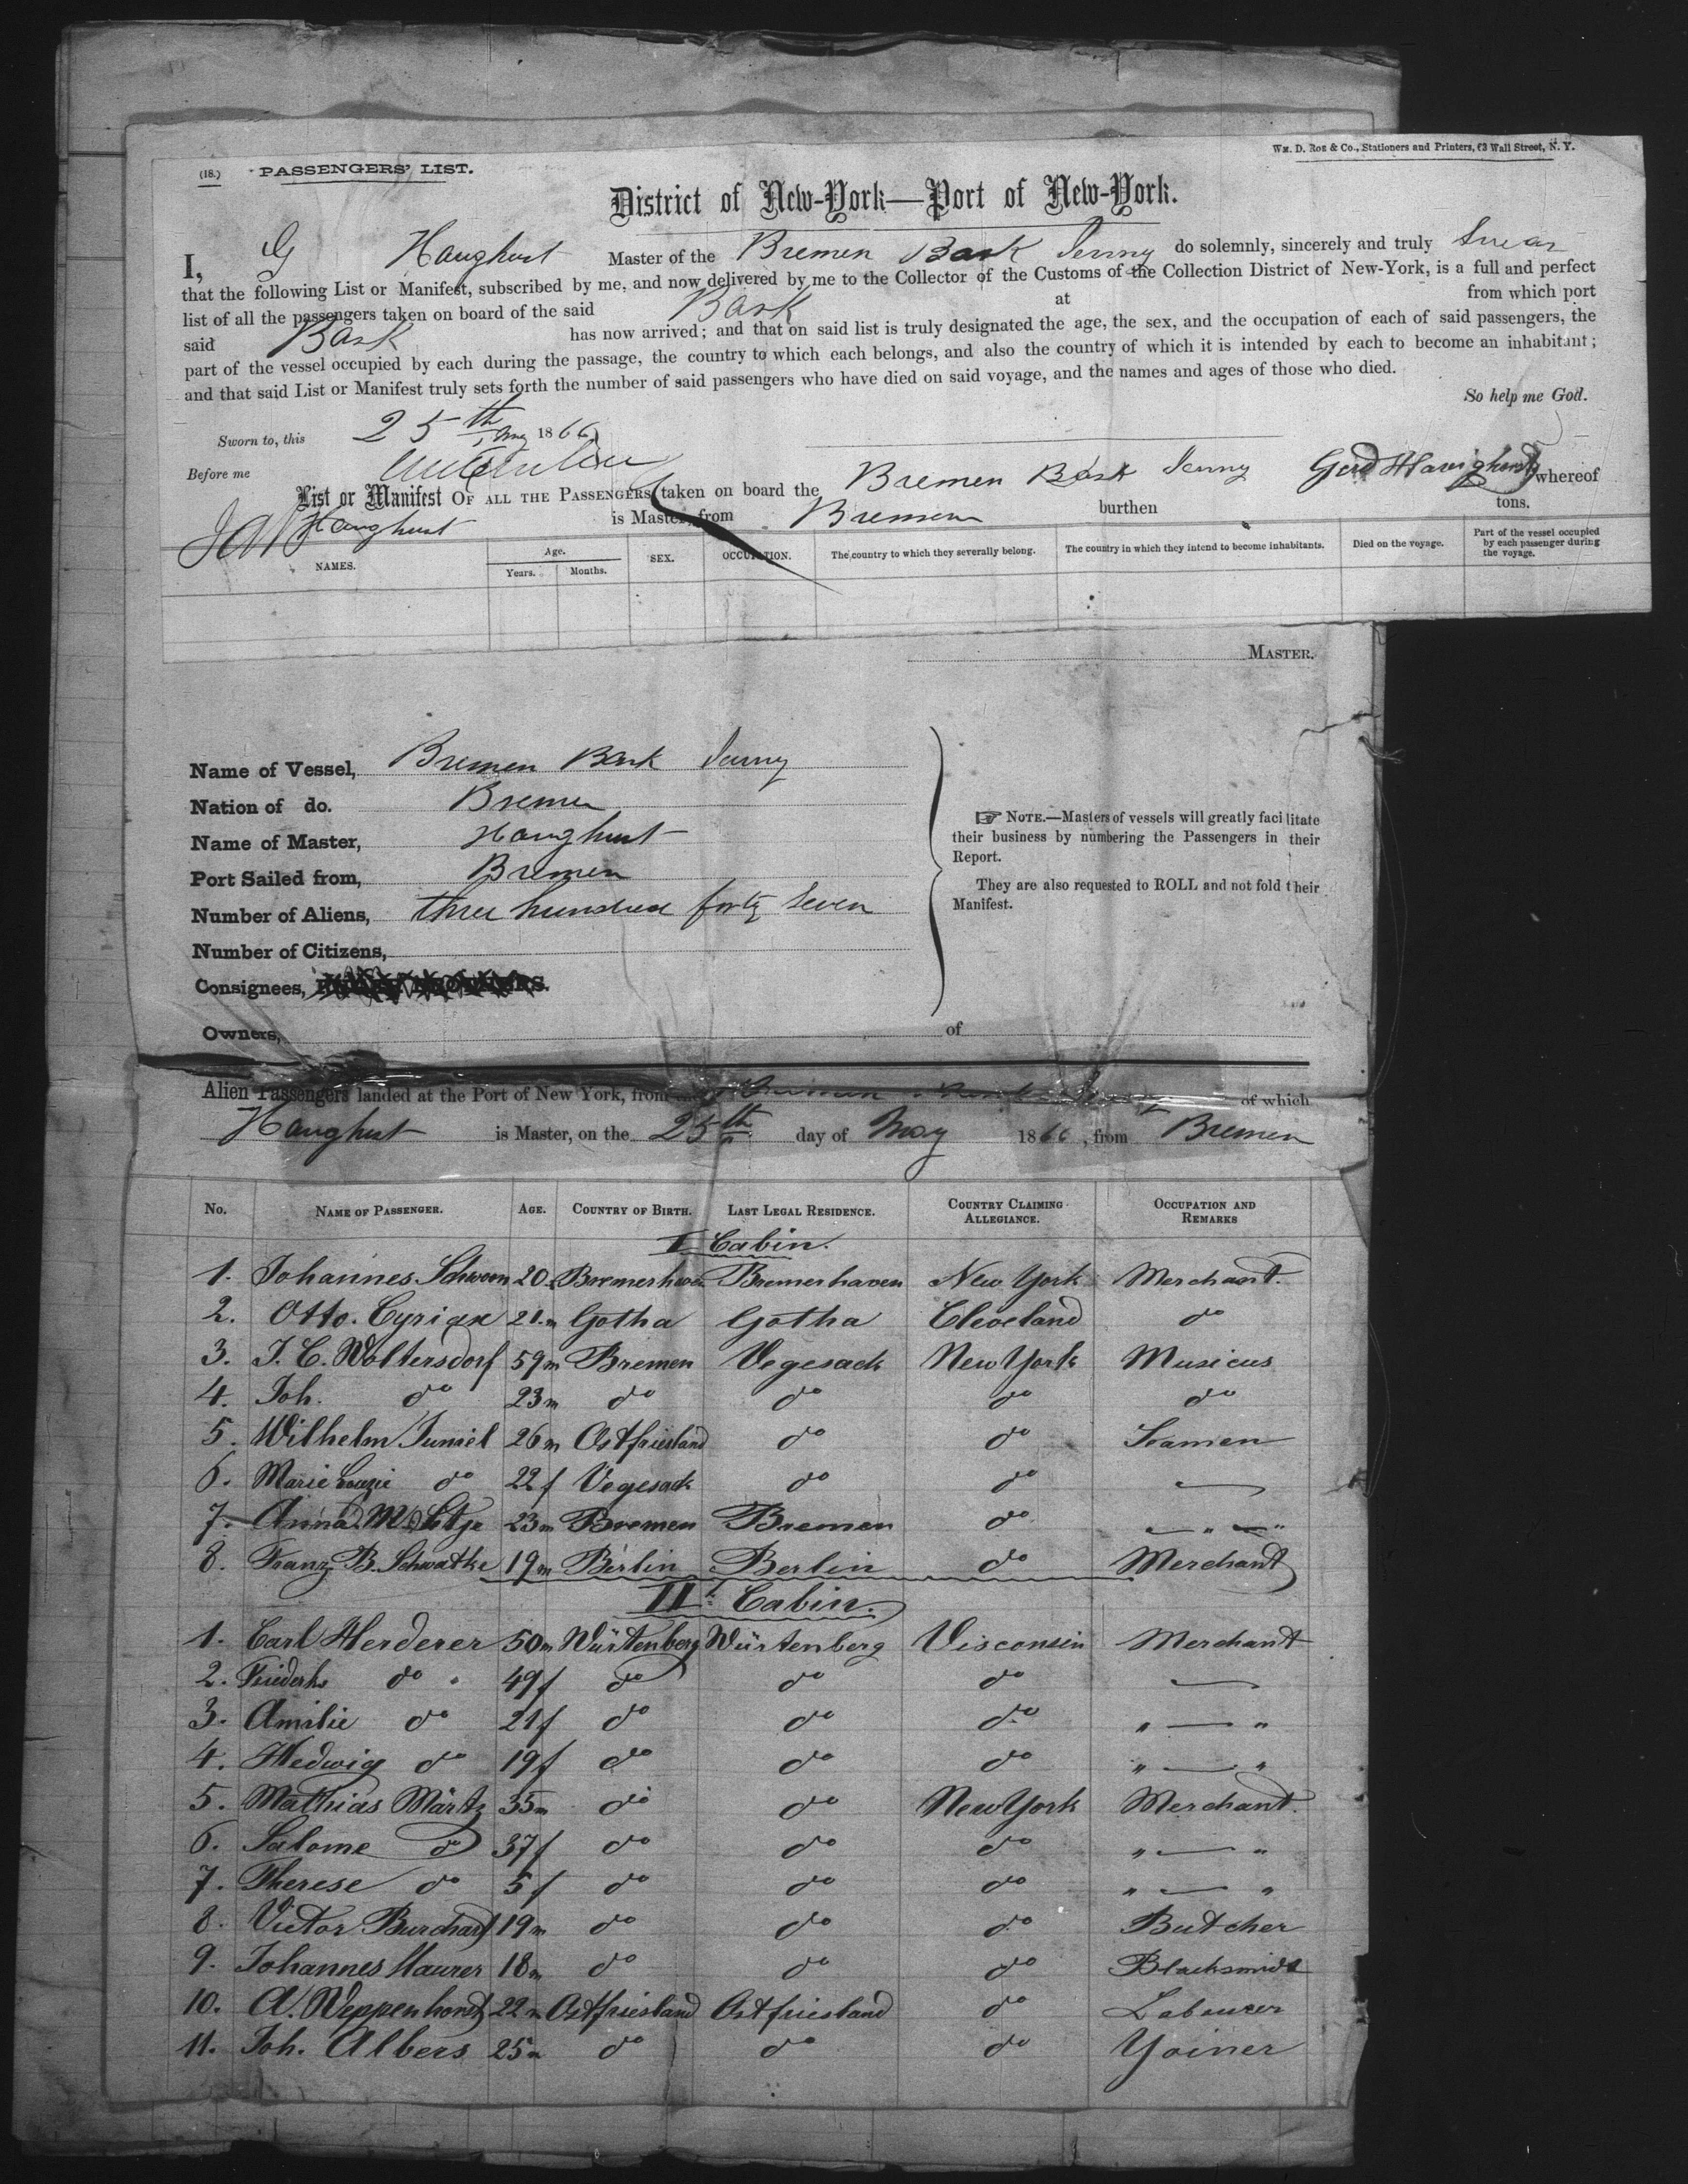 Wm. D. Roe & Co., Stationers and Printers, 63 Wall Street, N. Y.
(18.) PASSENGERS' LIST.
District of New-York—Port of New-York.
I, G Haughurst Master of the Bremen Bark Jenny do solemnly, sincerely and truly Swear
that the following List or Manifest, subscribed by me, and now delivered by me to the Collector of the Customs of the Collection District of New-York, is a full and perfect
list of all the passengers taken on board of the said Bark at from which port
said Bark has now arrived; and that on said list is truly designated the age, the sex, and the occupation of each of said passengers, the
part of the vessel occupied by each during the passage, the country to which each belongs, and also the country of which it is intended by each to become an inhabitant;
and that said List or Manifest truly sets forth the number of said passengers who have died on said voyage, and the names and ages of those who died.
So help me God.
Sworn to, this 25th May 1866
Before me
List or Manifest OF ALL THE PASSENGERS taken on board the Bremen Bark Jenny whereof
Haughurst is Master, from Bremen burthen tons.
NAMES. Age. Years. Months. SEX. OCCUPATION. The country to which they severally belong. The country in which they intend to become inhabitants. Died on the voyage. Part of the vessel occupied by each passenger during the voyage.
MASTER.
Name of Vessel, Bremen Bark Jenny
Nation of do. Bremen
Name of Master, Haughurst
Port Sailed from, Bremen
Number of Aliens, three hundred forty seven
Number of Citizens,
Consignees,
Owners, of
NOTE.—Masters of vessels will greatly facilitate
their business by numbering the Passengers in their
Report.
They are also requested to ROLL and not fold their
Manifest.
Alien Passengers landed at the Port of New York, from Bremen Bark Jenny of which
Haughurst is Master, on the 25th day of May 1866, from Bremen
No. NAME OF PASSENGER. AGE. COUNTRY OF BIRTH. LAST LEGAL RESIDENCE. COUNTRY CLAIMING ALLEGIANCE. OCCUPATION AND REMARKS
I Cabin.
1. Johannes Schwoon 20 m Bremerhaven Bremerhaven New York Merchant.
2. Otto. Cyriax 21. m Gotha Gotha Cleveland do
3. J. C. Woltersdorf 59 m Bremen Vegesack New York Musicus
4. Joh. do 23 m do do do do
5. Wilhelm 26 m Ostfriesland do do Seamen
6. Marie do 22 f Vegesack do do —
7. Anna. M. 23 m Bremen Bremen do — " — "
8. Franz B. Schwatke 19 m Berlin Berlin do Merchant
II. Cabin.
1. Carl Herderer 50 m Würtenberg Würtenberg Visconsin Merchant
2. Friederke do 49 f do do do —
3. Amilie do 21 f do do do " — "
4. Hedwig do 19 f do do do " — "
5. Mathias Märtz 35 m do do New York Merchant.
6. Salome do 37 f do do do " — "
7. Therese do 5 f do do do " — "
8. Victor Burchart 19 m do do do Butcher
9. Johannes Maurer 18 m do do do Blacksmidt
10. A. Weppenhorst 22 m Ostfriesland Ostfriesland do Labourer
11. Joh. Albers 25 m do do do Yoiner